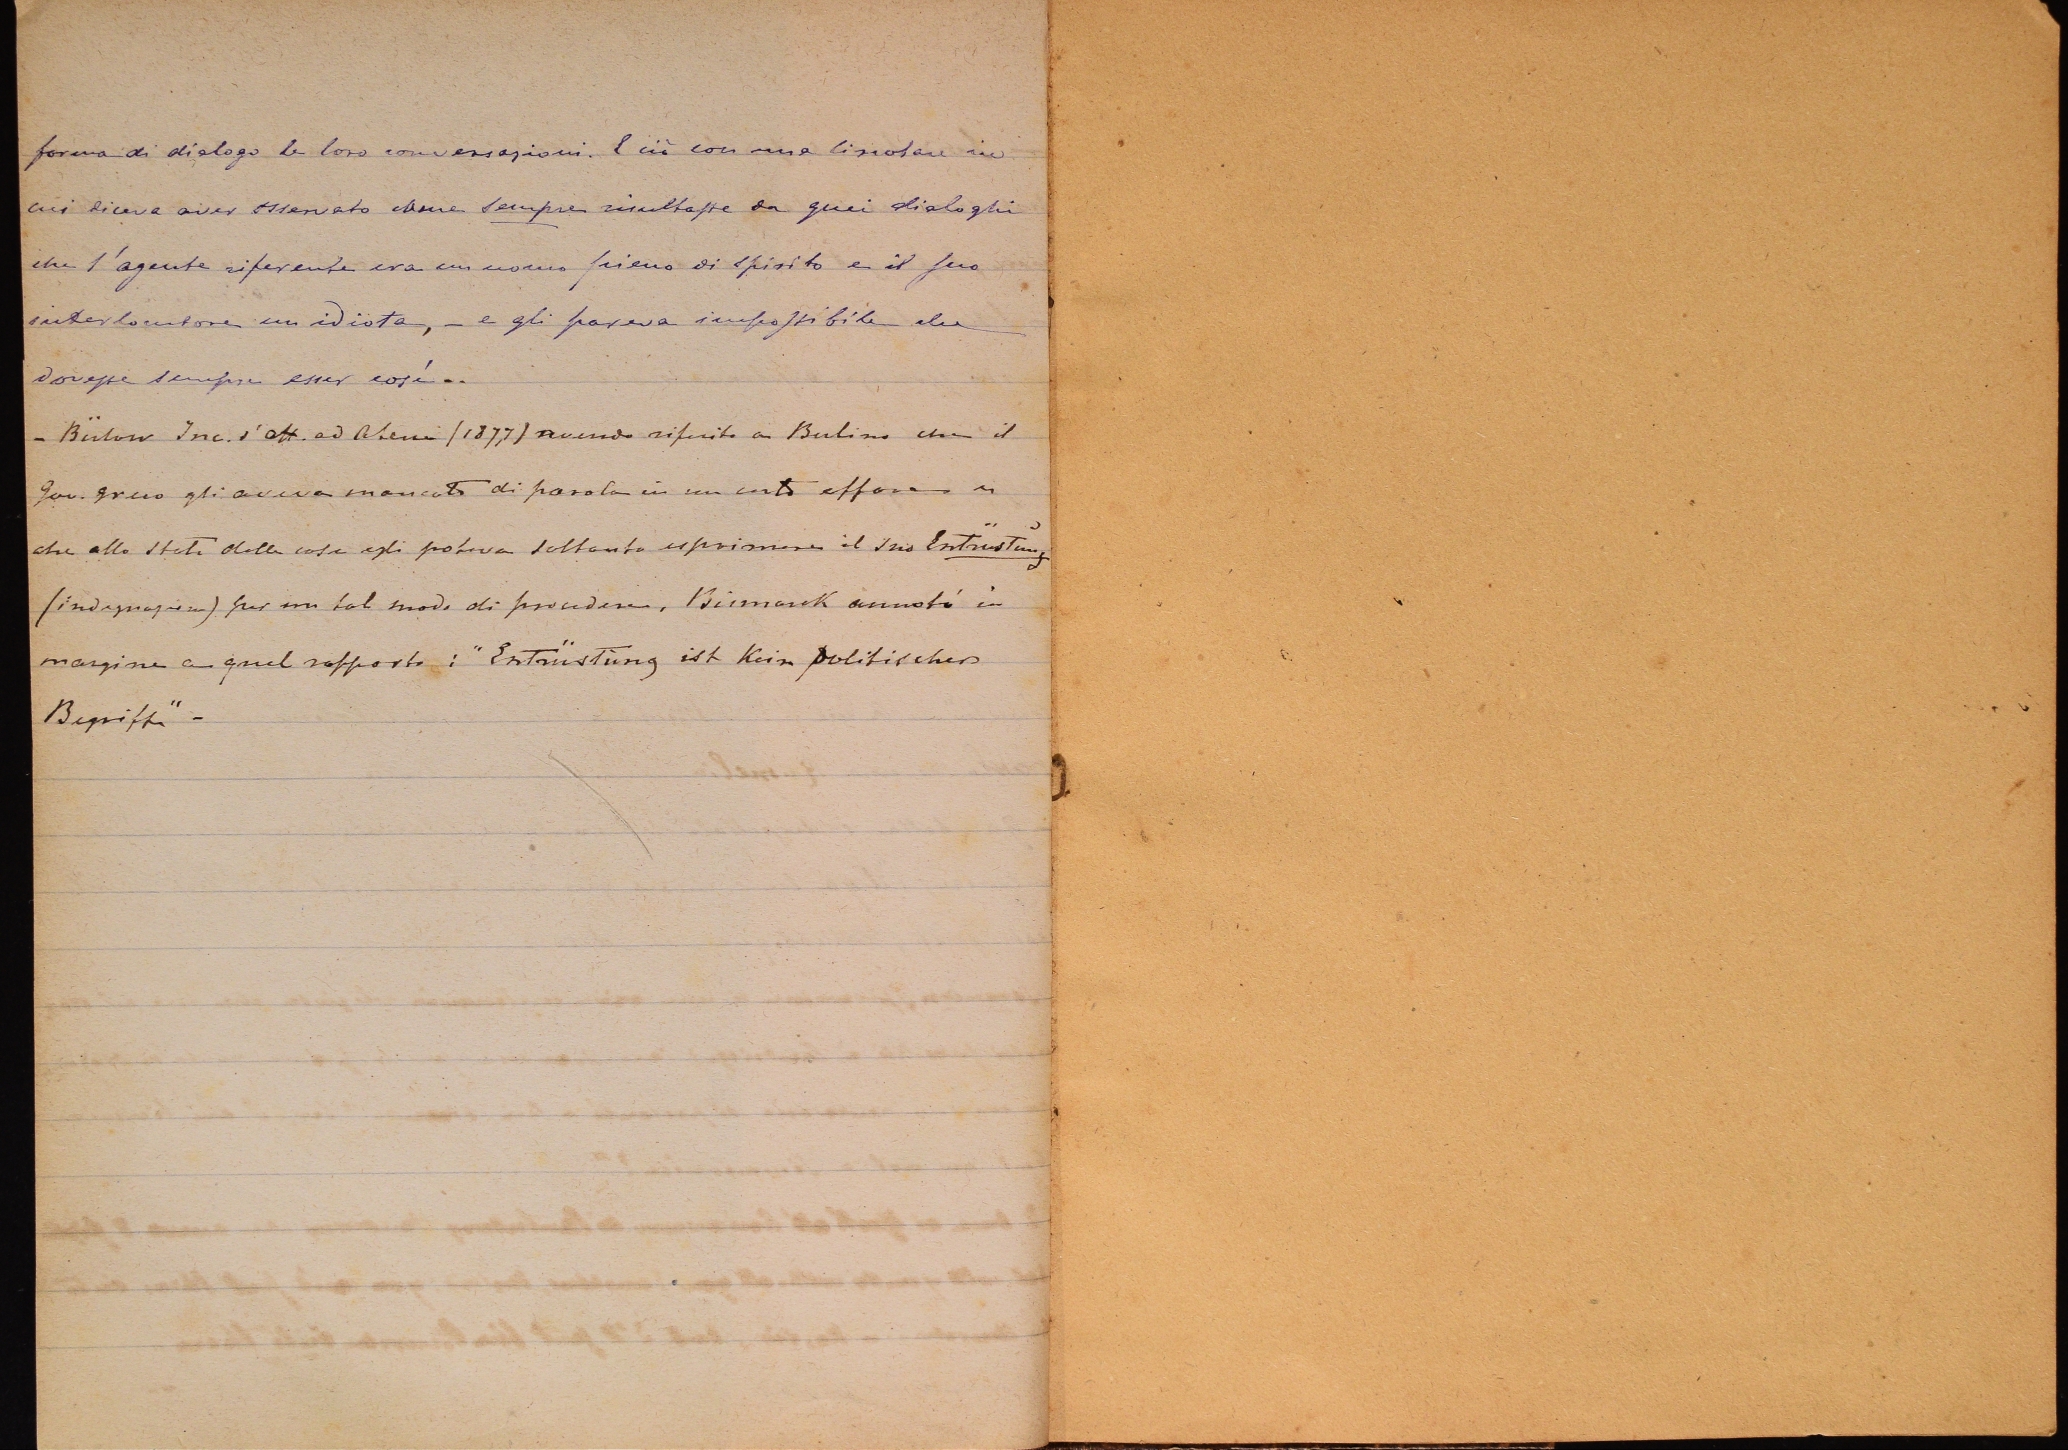 forma di dialogo le loro conversazioni. E ciò con una circolare in
cui diceva aver osservato come sempre risultasse da quei dialoghi
che l'agente riferente era un uomo pieno di spirito e il suo
interlocutore un idiota, – e gli pareva impossibile che
dovesse sempre esser così..
– Bülow Inc. d'aff. ad Atene (1877) avendo riferito a Berlino che il
Gov. greco gli aveva mancato di parola in un certo affare e
che allo stato delle cose egli poteva soltanto esprimere il suo Entrüstung
(indignazione) per un tal modo di procedere, Bismarck annotò in
margine a quel rapporto: "Entrüstung ist kein politischer
Begriff" –